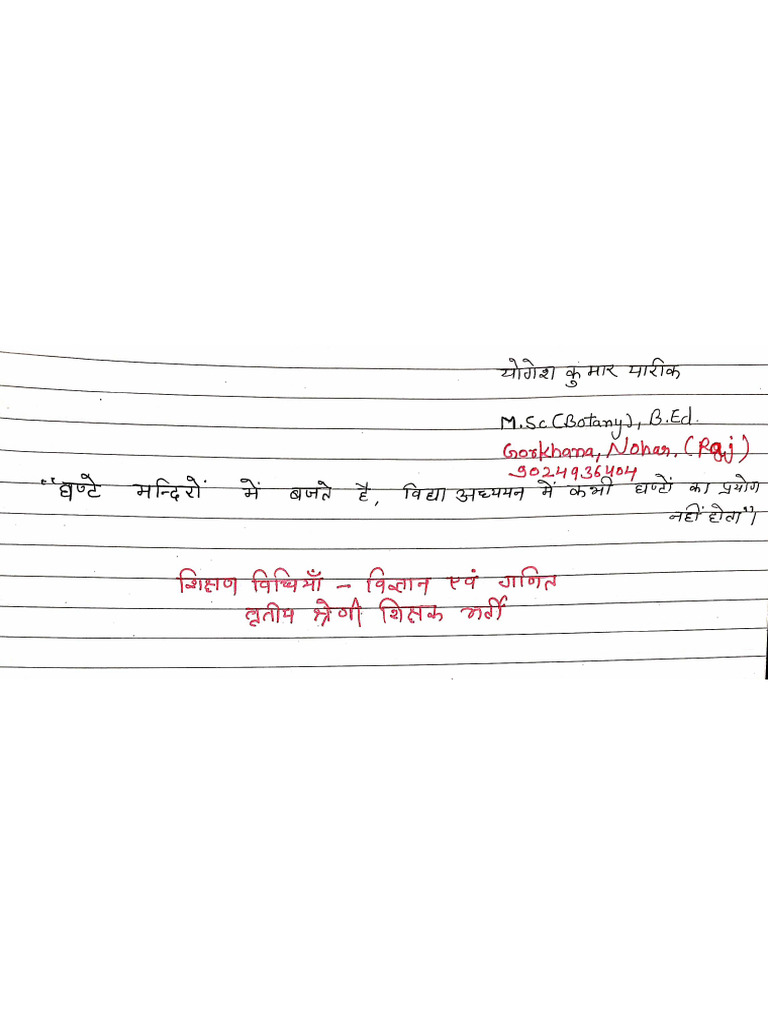 योगेश कुमार पारीक
M.Sc (Botany), B.Ed.
Gorkhana, Nohar, (Raj)
9024936404
“घण्टे मन्दिरों में बजते है, विद्या अध्ययन में कभी घण्टों का प्रयोग
नहीं होता”।
शिक्षण विधियाँ – विज्ञान एवं गणित
तृतीय श्रेणी शिक्षक भर्ती